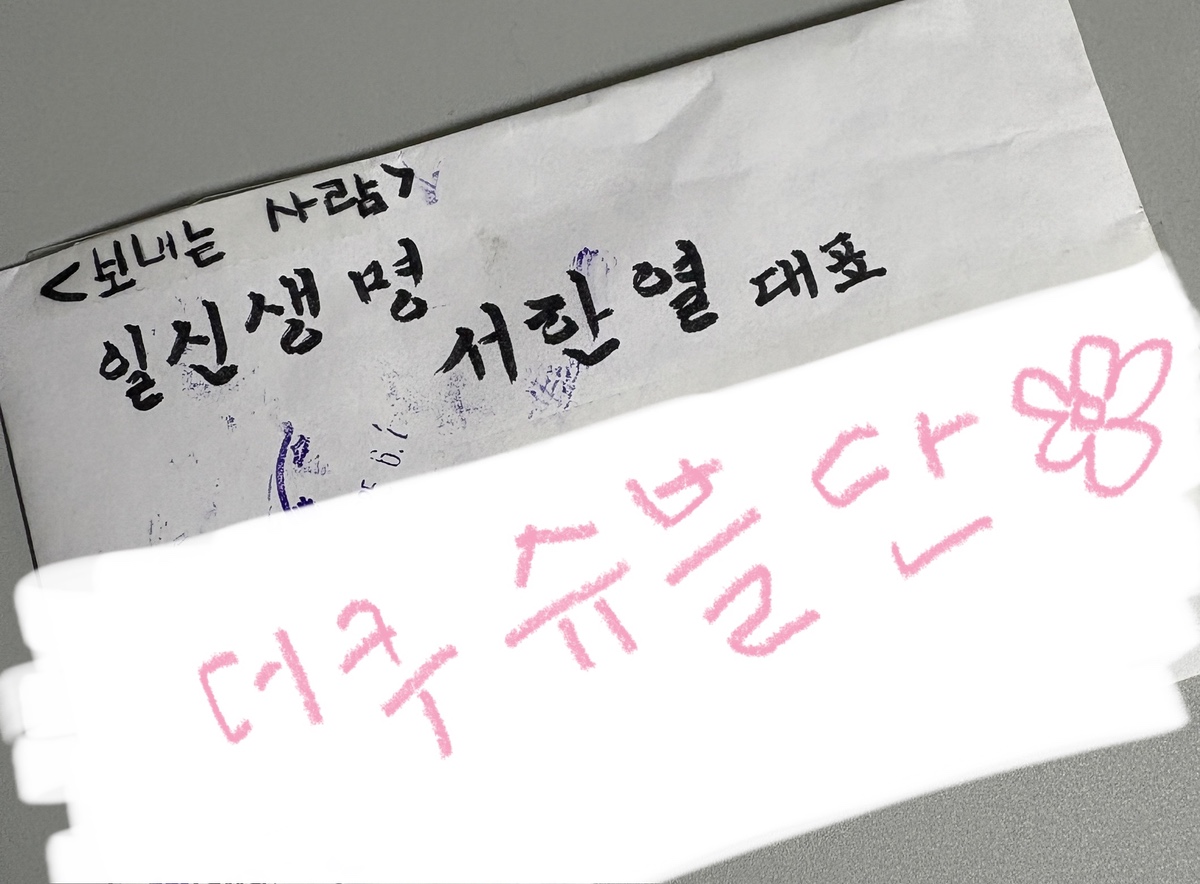 <보내는 사람>
일신생명 서한열 대표
6.1
더쿠 슈블단